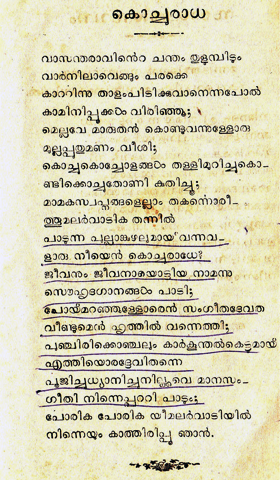 കൊച്ചുരാധ
വാസന്തരാവിൻെറ ചന്തം തുളുമ്പിടും
വാർനിലാവെങ്ങും പരക്കെ
കാററിനു താളംപിടിക്കുവാനെന്നപോൽ
കാമിനിപ്പൂക്കൾ വിരിഞ്ഞൂ;
മെല്ലവേ മാരുതൻ കൊണ്ടുവന്നുള്ളോരു
മുല്ലപ്പുതുമണം വീശി;
കൊച്ചുകൊച്ചോളങ്ങൾ തള്ളിമുറിച്ചുകൊ-
ണ്ടിക്കൊച്ചുതോണി കുതിച്ചു;
മാമകസ്വപ്നങ്ങളെല്ലാം തകന്നൊരീ
ത്തൂമലർവാടിക തന്നിൽ
പാടുന്ന പുല്ലാങ്കുഴലുമായ് വന്നവ-
ളാരു നീയെൻ കൊച്ചുരാധേ?
ജീവനും ജീവനായൊട്ടിയ നാമന്നു
സൌഹൃദഗാനങ്ങൾ പാടി;
പോയ്മറഞ്ഞുള്ളോരെൻ സംഗീതദേവത
വീണ്ടുമെൻ ഹൃത്തിൽ വന്നെത്തി;
പുഞ്ചിരിക്കൊഞ്ചലും കാർകൂന്തൽകെട്ടുമായ്
എത്തിയൊരദ്ദേവിതന്നെ
പൂജിച്ചുധ്യാനിച്ചുനില്ക്കുവെ മാനസം-
ഗീതി നിന്നെപ്പററി പാടും;
പോരിക പോരിക യീമലർവാടിയിൽ
നിന്നെയും കാത്തിരിപ്പൂ ഞാൻ.